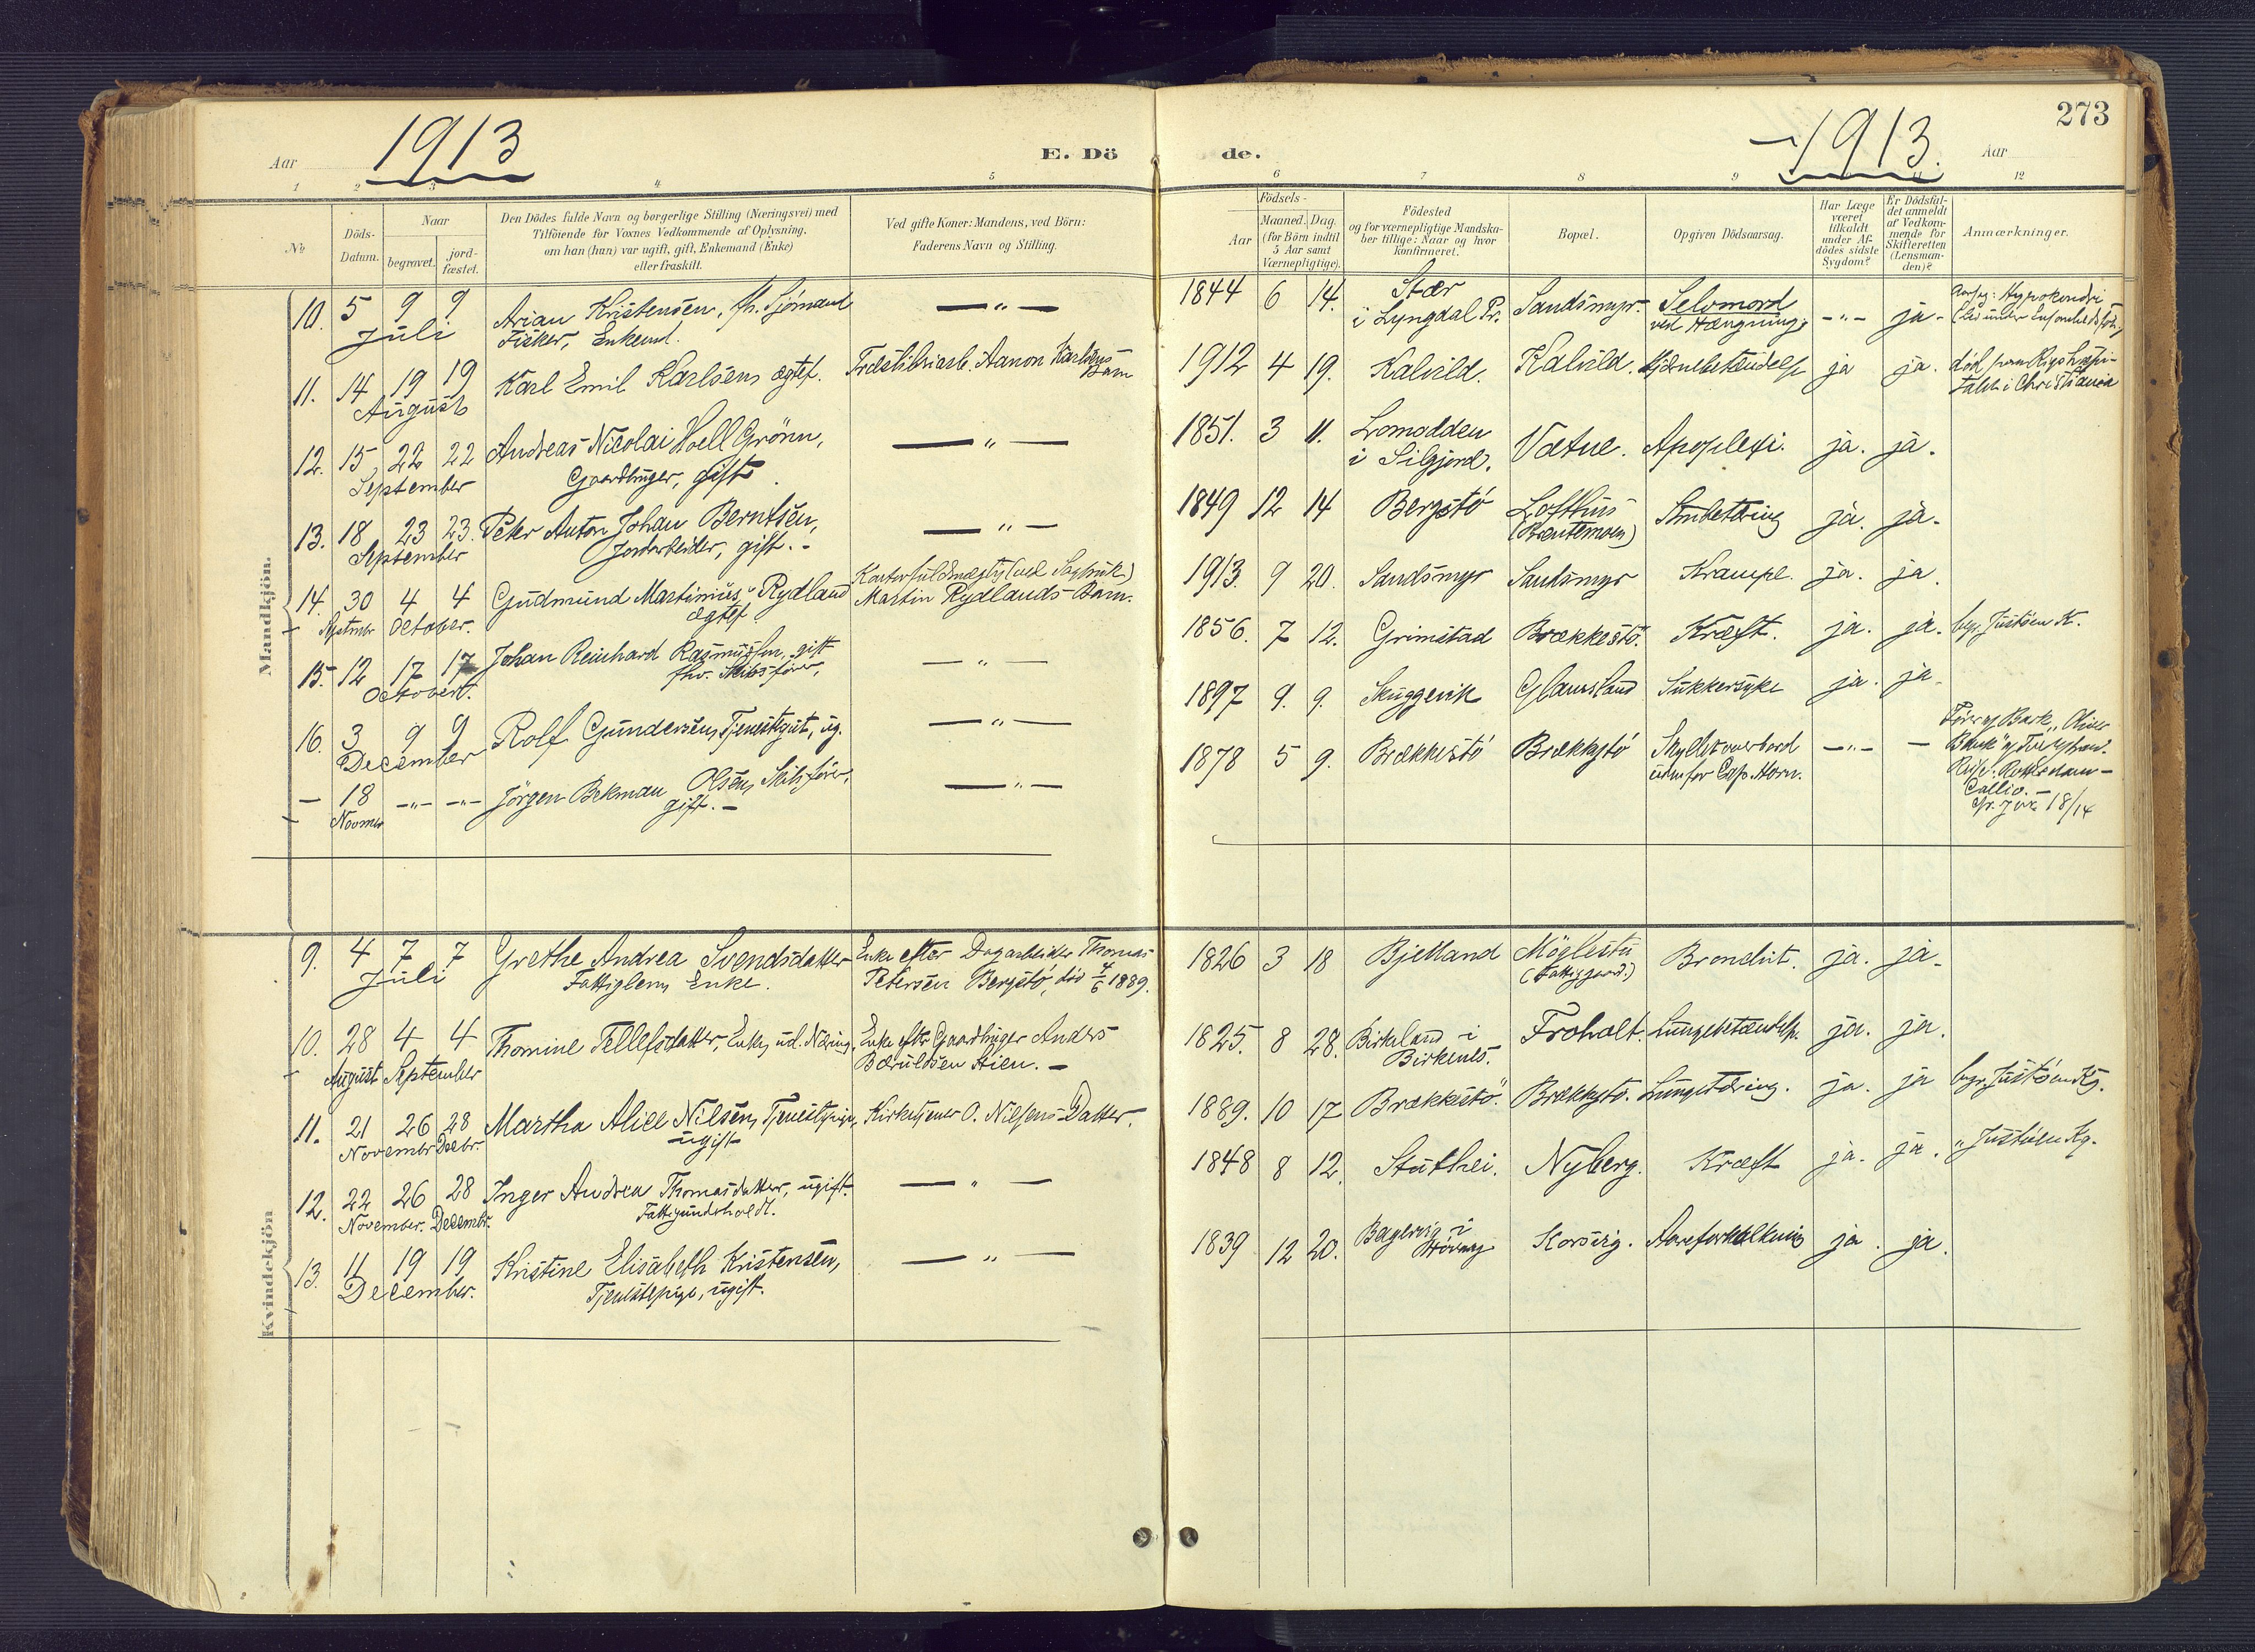 273
Aar 1913 E. Dö de. 1913. Aar
1 2 3 4 5 6 7 8 9 12
No
Döds-Datum.
Naar
begravet.
jord-fæstet.
Den Dödes fulde Navn og borgerlige Stilling (Næringsvei) med
Tilföiende for Voxnes Vedkommende af Oplysning,
om han (hun) var ugift, gift, Enkemand (Enke)
eller fraskilt.
Ved gifte Koner: Mandens, ved Börn:
Faderens Navn og Stilling.
Födsels-
Aar
Maaned. Dag.
(for Börn indtil
5 Aar samt
Værnepligtige).
Födested
og for værnepligtige Mandska-
ber tillige: Naar og hvor
konfirmeret.
Bopæl.
Opgiven Dödsaarsag.
Har Læge
været
tilkaldt
under Af-
dödes sidste
Sygdom?
Er Dödsfal-
det anmeldt
af Vedkom-
mende for
Skifteretten
(Lensman-
den)?
Anmærkninger.
Mandkjön.
10. 5 9 9 Arian Kristensen, fh. Sjömand — " — 1844 6 14. Stær Sandsmyr. Selvmord — " — ja.
Juli Fisker, Enkemd. i Lyngdal Pr. ved Hængning
11. 14 19 19 Karl Emil Karlsen, ægtef. Aanon Karlsens 1912 4 19. Kalvild. Kalvild. Hjernebetændelse ja ja. död paa Rigshospi-
August Barn talet i Christiania
12. 15 22 22 Andreas Nicolai Hoell Grönn, — " — 1851. 3 11. Lomodden Vatne. Apoplexi. ja. ja.
September Gaardbruger, gift. i Siljord.
13. 18 23 23. Peter Anton Johan Berntsen, — " — 1849 12 14 Bergstö Lofthus ja. ja.
September Jordarbeider, gift.
14. 30 4 4 Gudmund Martinius Rydland 1913. 9 20. Sandsmyr Sandsmyr Krampe. ja. ja.
Septmbr October. ægtef. Martin Rydlands Barn.
15. 12 17 17 Johan Reinhard Rasmussen, gift — " — 1856. 7 12. Grimstad Brækkestö. Kræft. ja. ja. begr. Justöen K.
October. fhv. Skibsförer,
16. 3 9 9 Rolf Gundersen, Tjenestegut, ug. — " — 1897 9. 9. Skuggevik Glamsland Sukkersyke ja. ja.
December
— 18 — " — — " — Jörgen Bekman Olsen, Skibsförer, — " — 1878 5 9. Brækkestö Brækkestö Skyllet overbord — " — — Förer af Bark "Oliver
Novmbr gift. — udenfor Cap Horn. Bank" af Tvedestrand.
Reise: Rotterdam –
Callio. —
18/14
Kvindekjön
9. 4 7 7 Grethe Andrea Svendsdatter Enke efter Dagarbeider Thomas 1826 3 18 Bjelland Möglestu ja. ja.
Juli Fattiglem, Enke. Petersen Bergstö, död 4/6 1889. (Fattiggaard.)
10. 28 4 4 Thomine Tellefsdatter, Enke, ud. Næring. Enke efter Gaardbruger Anders 1825. 8 28. Birkeland i Froholt. Lungebetændelse. ja. ja.
August September Bæruldsen Stien. — Birkenes.
11. 21 26 28 Martha Alice Nilsen, Tjenestepige, Kirketjener O. Nilsens Datter. 1889. 10 17 Brækkestö. Brækkestö. Lungetæring. ja. ja begr. Justöen Kg.
Novembr Decbr. ugift
12. 22 26 28 Inger Andrea Thomasdatter, ugift. — " — 1848 8 12. Stuthei. Nyberg. Kræft ja. ja. " Justöen Kg.
November. Decembr. Fattigunderholdt.
13. 11 19 19 Kristine Elisabeth Kristensen, — " — 1839 12 20. i Korsvig. Aareforkalkning ja. ja.
December. Tjenestepige, ugift. Hövaag